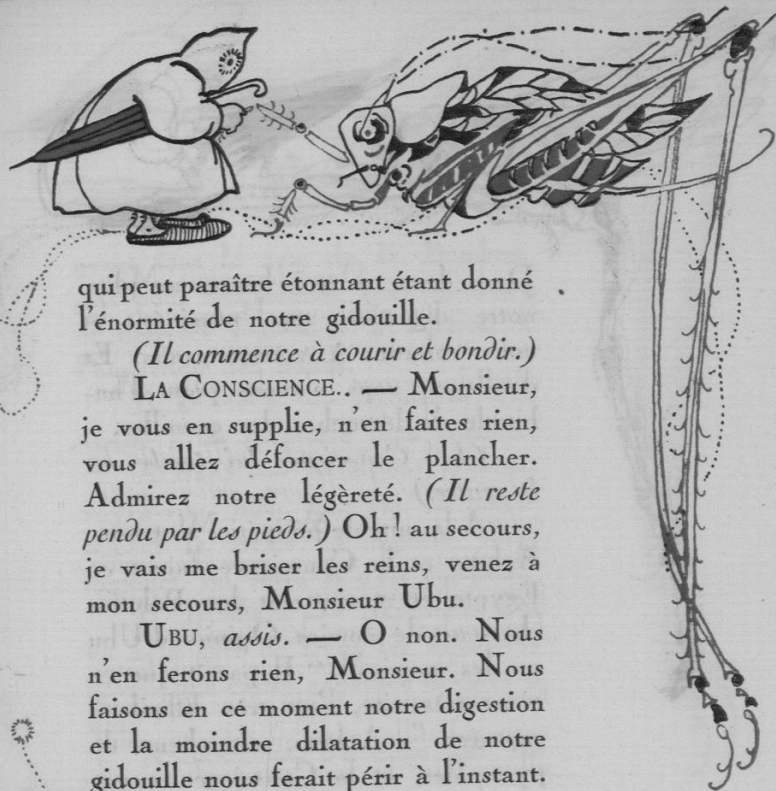 qui peut paraître étonnant étant donné
l'énormité de notre gidouille.
(Il commence à courir et bondir.)
LA CONSCIENCE.. — Monsieur,
je vous en supplie, n'en faites rien,
vous allez défoncer le plancher.
Admirez notre légèreté. (Il reste
pendu par les pieds.) Oh ! au secours,
je vais me briser les reins, venez à
mon secours, Monsieur Ubu.
UBU, assis. — O non. Nous
n'en ferons rien, Monsieur. Nous
faisons en ce moment notre digestion
et la moindre dilatation de notre
gidouille nous ferait périr à l'instant.